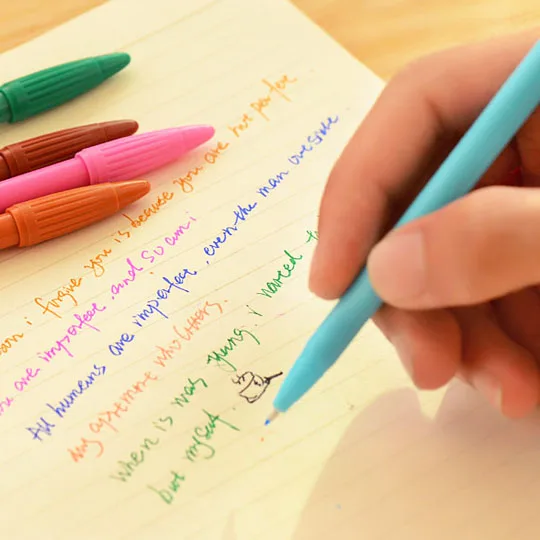 i forgive you is because you are not perfect.
are imperfect. and so am i
All humans are imperfect. even the man outside
my apartment who litters.
when is was young. i wanted
but myself.